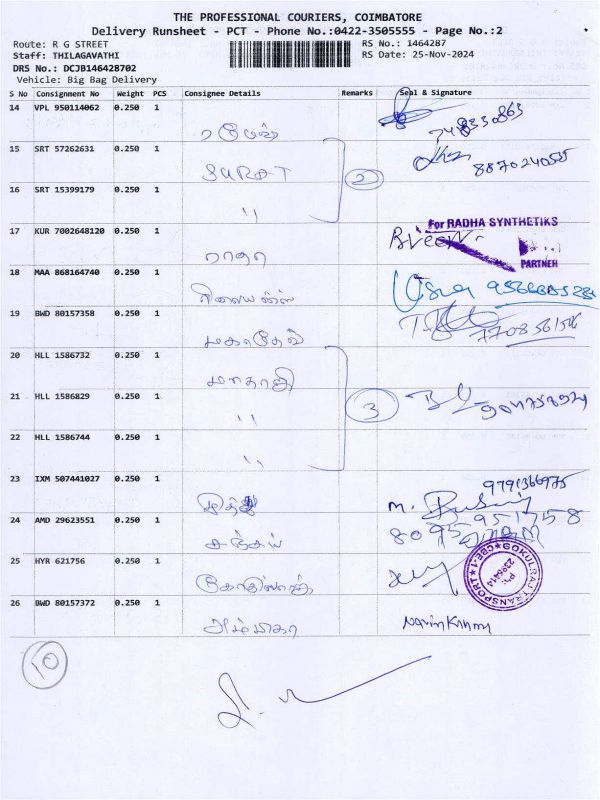 THE PROFESSIONAL COURIERS, COIMBATORE
Delivery Runsheet - PCT - Phone No.:0422-3505555 - Page No.:2
Route: R G STREET
Staff: THILAGAVATHI
DRS No.: DCJB146428702
Vehicle: Big Bag Delivery
RS No.: 1464287
RS Date: 25-Nov-2024
S No Consignment No Weight PCS Consignee Details Remarks Seal & Signature
14 VPL 950114062 0.250 1
ரமேஷ்
15 SRT 57262631 0.250 1
SURAT 2
16 SRT 15399179 0.250 1
"
17 KUR 7002648120 0.250 1
For RADHA SYNTHETIKS
PARTNER
ராதா
18 MAA 868164740 0.250 1
ரிலையன்ஸ்
19 BWD 80157358 0.250 1
மகாதேவ்
20 HLL 1586732 0.250 1
21 HLL 1586829 0.250 1
" 3
22 HLL 1586744 0.250 1
"
23 IXM 507441027 0.250 1
9791366975
24 AMD 29623551 0.250 1
8095951758
சஞ்சய்
25 HYR 621756 0.250 1
GOKULRAJ TRANSPORT
26 BWD 80157372 0.250 1
Navin Kumar
10